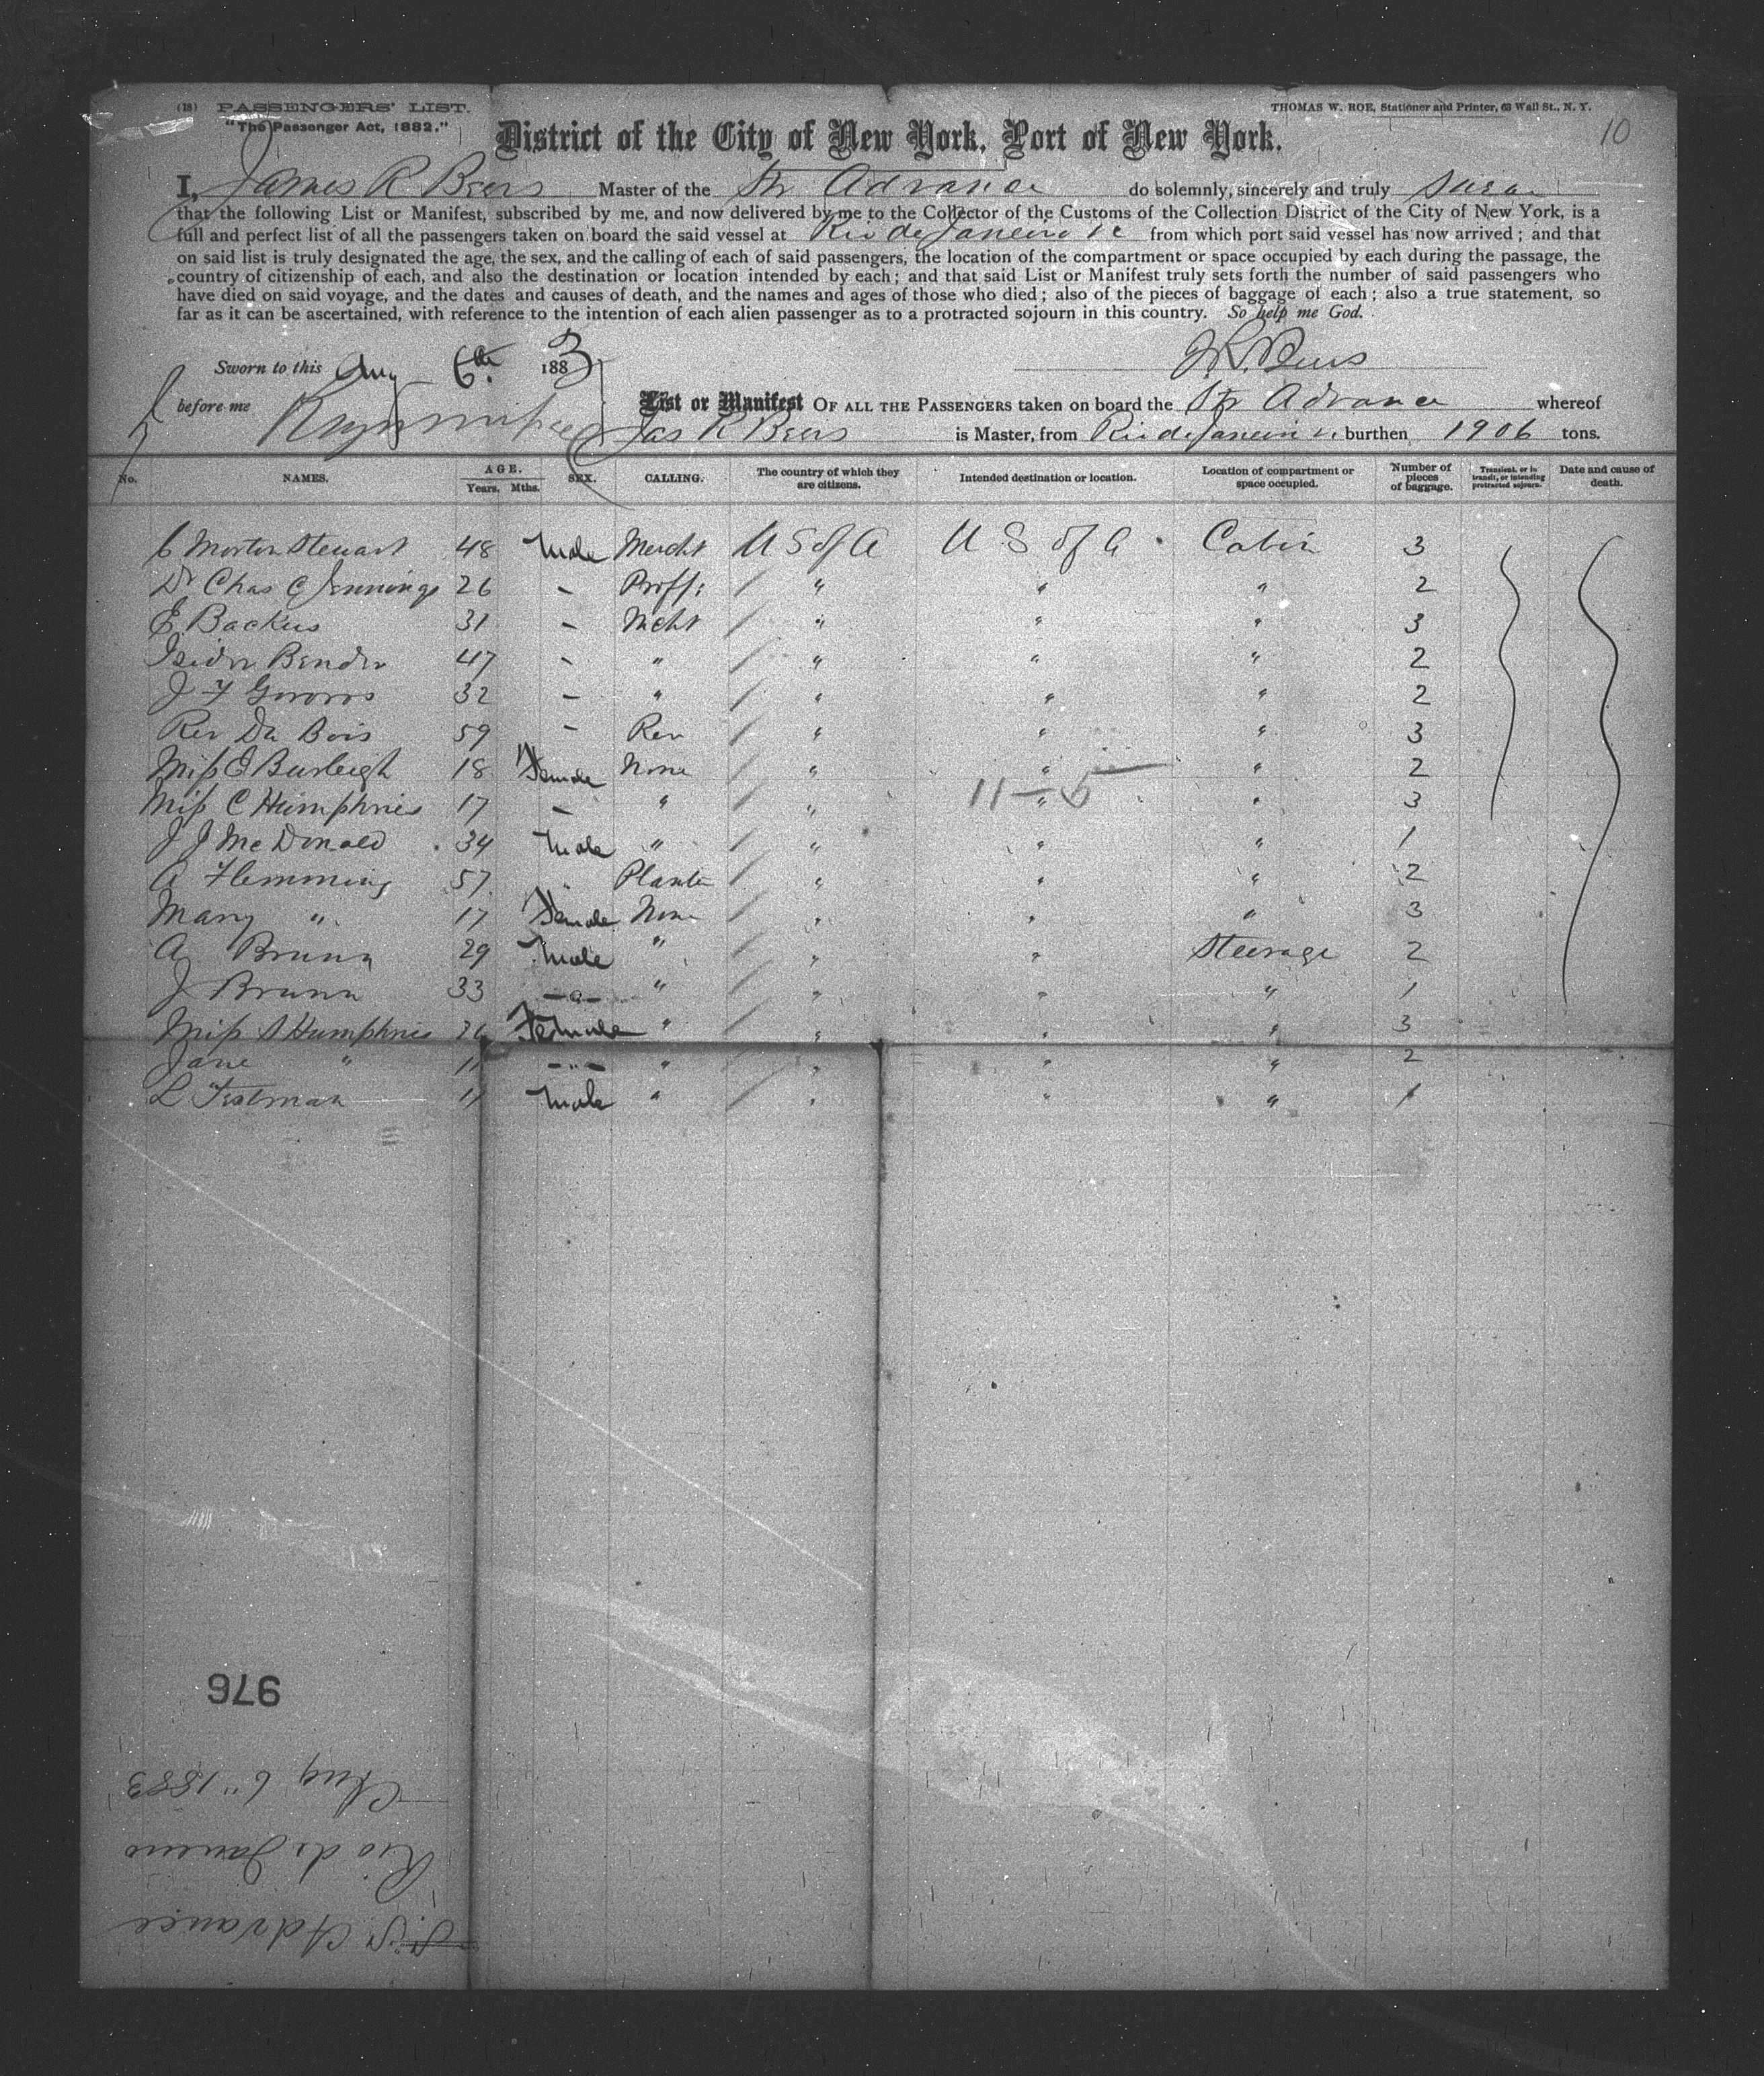 (18) PASSENGERS' LIST.
"The Passenger Act, 1882."
THOMAS W. ROE, Stationer and Printer, 63 Wall St., N. Y.
10
District of the City of New York, Port of New York.
I, James R Beers Master of the Str Advance do solemnly, sincerely and truly swear
that the following List or Manifest, subscribed by me, and now delivered by me to the Collector of the Customs of the Collection District of the City of New York, is a
full and perfect list of all the passengers taken on board the said vessel at Rio de Janeiro &c from which port said vessel has now arrived; and that
on said list is truly designated the age, the sex, and the calling of each of said passengers, the location of the compartment or space occupied by each during the passage, the
country of citizenship of each, and also the destination or location intended by each; and that said List or Manifest truly sets forth the number of said passengers who
have died on said voyage, and the dates and causes of death, and the names and ages of those who died; also of the pieces of baggage of each; also a true statement, so
far as it can be ascertained, with reference to the intention of each alien passenger as to a protracted sojourn in this country. So help me God.
Sworn to this Aug 6th 1883
J.R. Beers
before me
List or Manifest OF ALL THE PASSENGERS taken on board the Str Advance whereof
Jas R Beers is Master, from Rio de Janeiro burthen 1906 tons.
No. NAMES. AGE. Years. Mths. SEX. CALLING. The country of which they are citizens. Intended destination or location. Location of compartment or space occupied. Number of pieces of baggage. Transient, or in transit, or intending protracted sojourn. Date and cause of death.
C Morton Stewart 48 Male Mercht U S of A U S of A Cabin 3
Dr Chas C Jennings 26 - Proff: " " " 2
E. Backus 31 - Mcht " " " 3
Isidor Bender 47 - " " " " 2
J F 32 - " " " " 2
Rev Du Bois 59 - Rev " " " 3
Miss E Burleigh 18 Female None " " " 2
Miss C Humphries 17 - " " " " 3
11-5
J J McDonald 34 Male " " " " 1
A Flemming 57 " Planter " " " 2
Mary " 17 Female None " " " 3
A Brunn 29 Male " " " Steerage 2
J Brunn 33 -"- " " " " 1
Miss S Humphries 26 Female " " " " 3
Jane " 11 -"- " " " " 2
L 11 Male " " " " 1
976
Aug 6" 1883
Rio de Janeiro
S.S. Advance